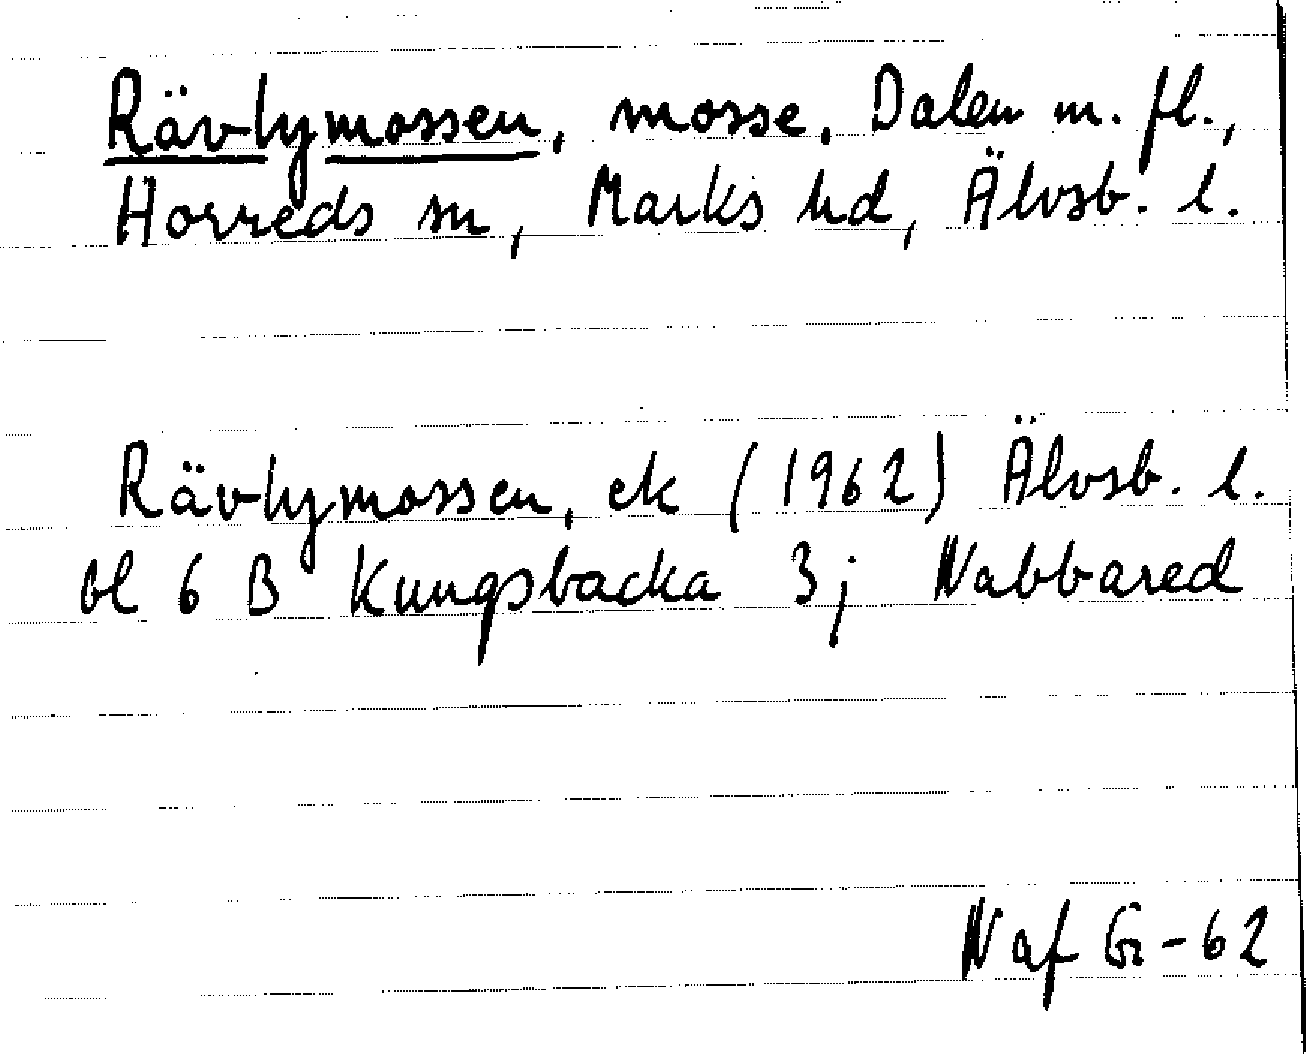 Rävlymossen, mosse, Dalen m. fl.,
Horreds sn, Marks hd, Älvsb. l.
Rävlymossen, ek (1962) Älvsb. l.
bl 6 B Kungsbacka 3j Nabbared
Naf Gr-62